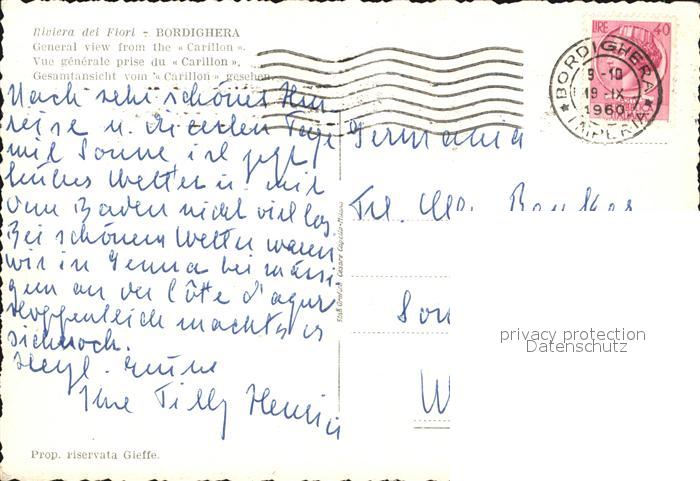 Riviera dei Fiori - BORDIGHERA
General view from the « Carillon ».
Vue générale prise du « Carillon ».
Gesamtansicht vom « Carillon » gesehen.
LIRE 40
BORDIGHERA
9-10
19-IX
1960
IMPERIA
Nach sehr schönes Hin
reise u. Tage
mit Sonne ist jetzt
Wetter u. mit
dem Baden nicht viel los
Bei schönem Wetter waren
wir in Genua bei mässi
gem an der Côte d'azur
Hoffentlich machts es
sich noch.
Herzl. Grüße
Ihre Tilly
Germania
Frl.
Prop. riservata Gieffe.
privacy protection
Datenschutz